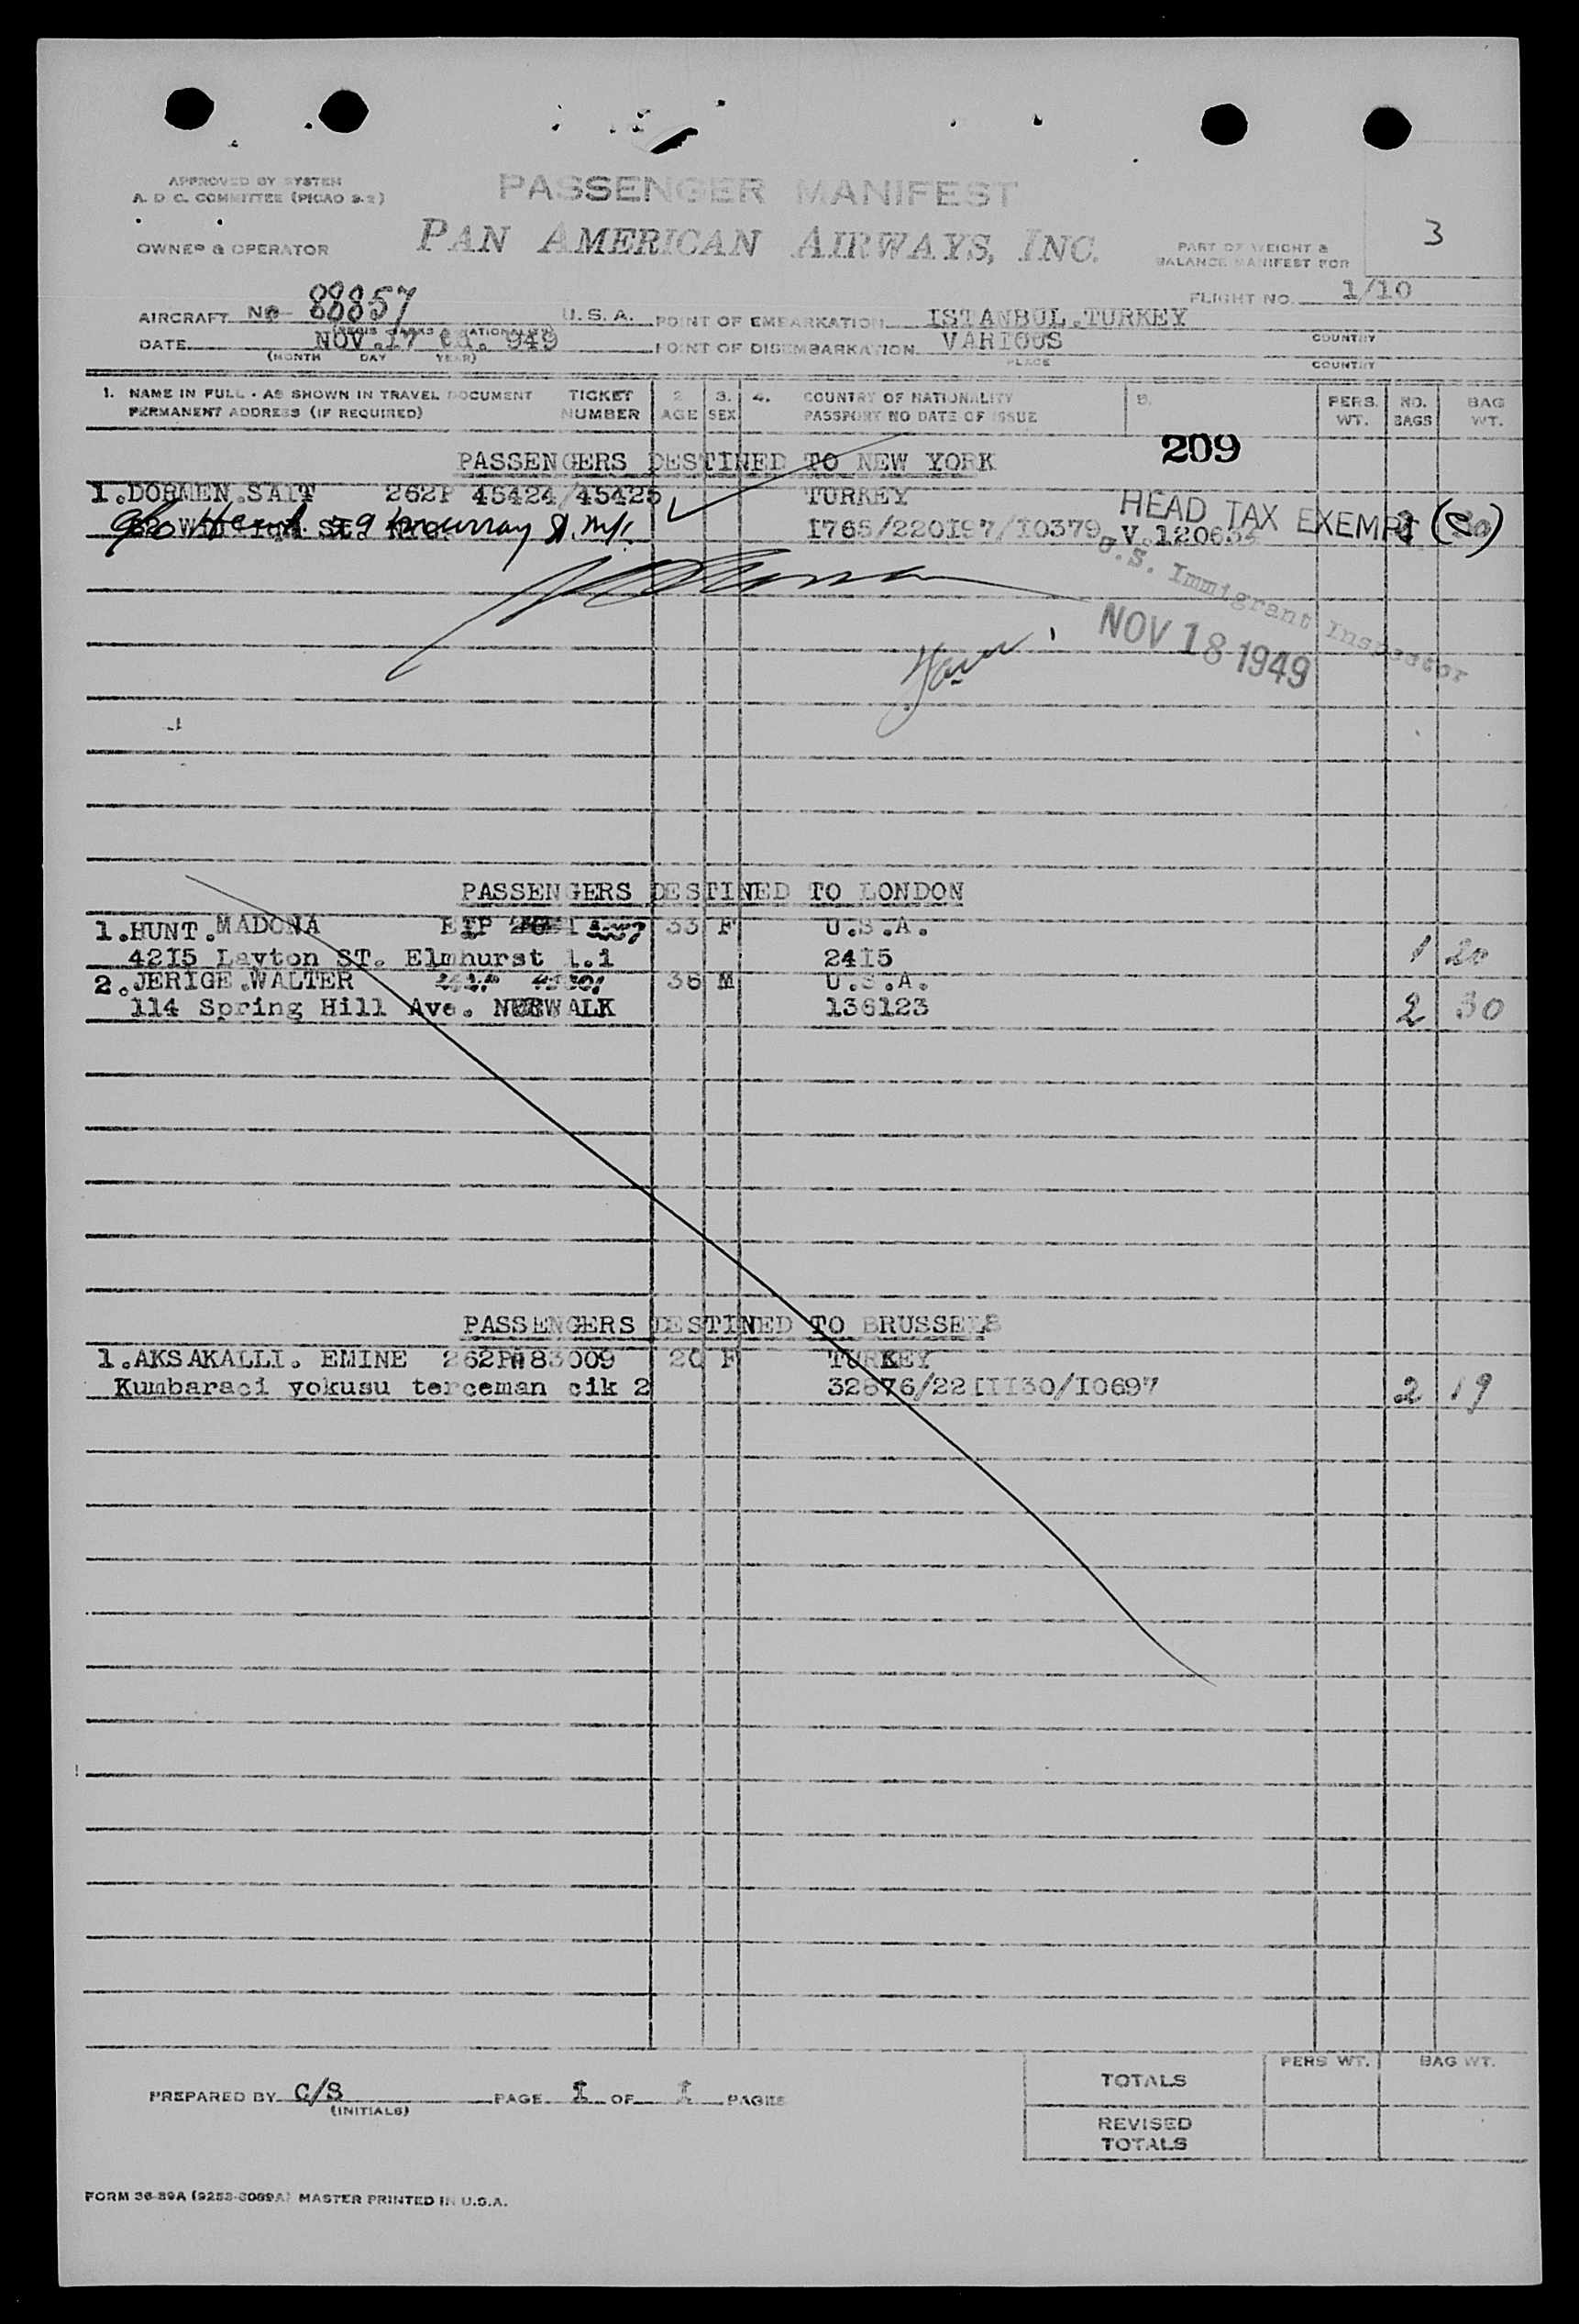 APPROVED BY SYSTEM
A. D. C. COMMITTEE (PICAO 9-2)
PASSENGER MANIFEST
OWNER & OPERATOR
PAN AMERICAN AIRWAYS, INC.
PART OF WEIGHT &
BALANCE MANIFEST FOR
3
FLIGHT NO. 1/10
AIRCRAFT NC 88857 U. S. A. POINT OF EMBARKATION ISTANBUL.TURKEY
DATE NOV.17 949 POINT OF DISEMBARKATION VARIOUS COUNTRY
(MONTH DAY YEAR) PLACE COUNTRY
1. NAME IN FULL - AS SHOWN IN TRAVEL DOCUMENT TICKET 2. 3. 4. COUNTRY OF NATIONALITY 5. PERS. NO. BAG
PERMANENT ADDRESS (IF REQUIRED) NUMBER AGE SEX PASSPORT NO DATE OF ISSUE WT. BAGS WT.
209
PASSENGERS DESTINED TO NEW YORK
1.DORMEN.SAIT 262P 45424/45425 TURKEY
HEAD TAX EXEMPT (c)
Murray St. NYC. I765/220I97/I0379 V.
U.S. Immigrant Inspector
NOV 18 1949
PASSENGERS DESTINED TO LONDON
1.HUNT.MADONA 33 F U.S.A.
42I5 Layton ST. Elmhurst l.i 24I5 1 20
2.JERIGE.WALTER 36 M U.S.A.
114 Spring Hill Ave. NORWALK 136123 2 30
PASSENGERS DESTINED TO BRUSSELS
1.AKSAKALLI. EMINE 262PH83009 20 F TURKEY
Kumbaraci yokusu terceman cik 2 32676/22III30/I0697 2 19
PERS WT. BAG WT.
TOTALS
PREPARED BY C/S PAGE I OF I PAGES
(INITIALS)
REVISED
TOTALS
FORM 36-89A (9253-3089A) MASTER PRINTED IN U.S.A.